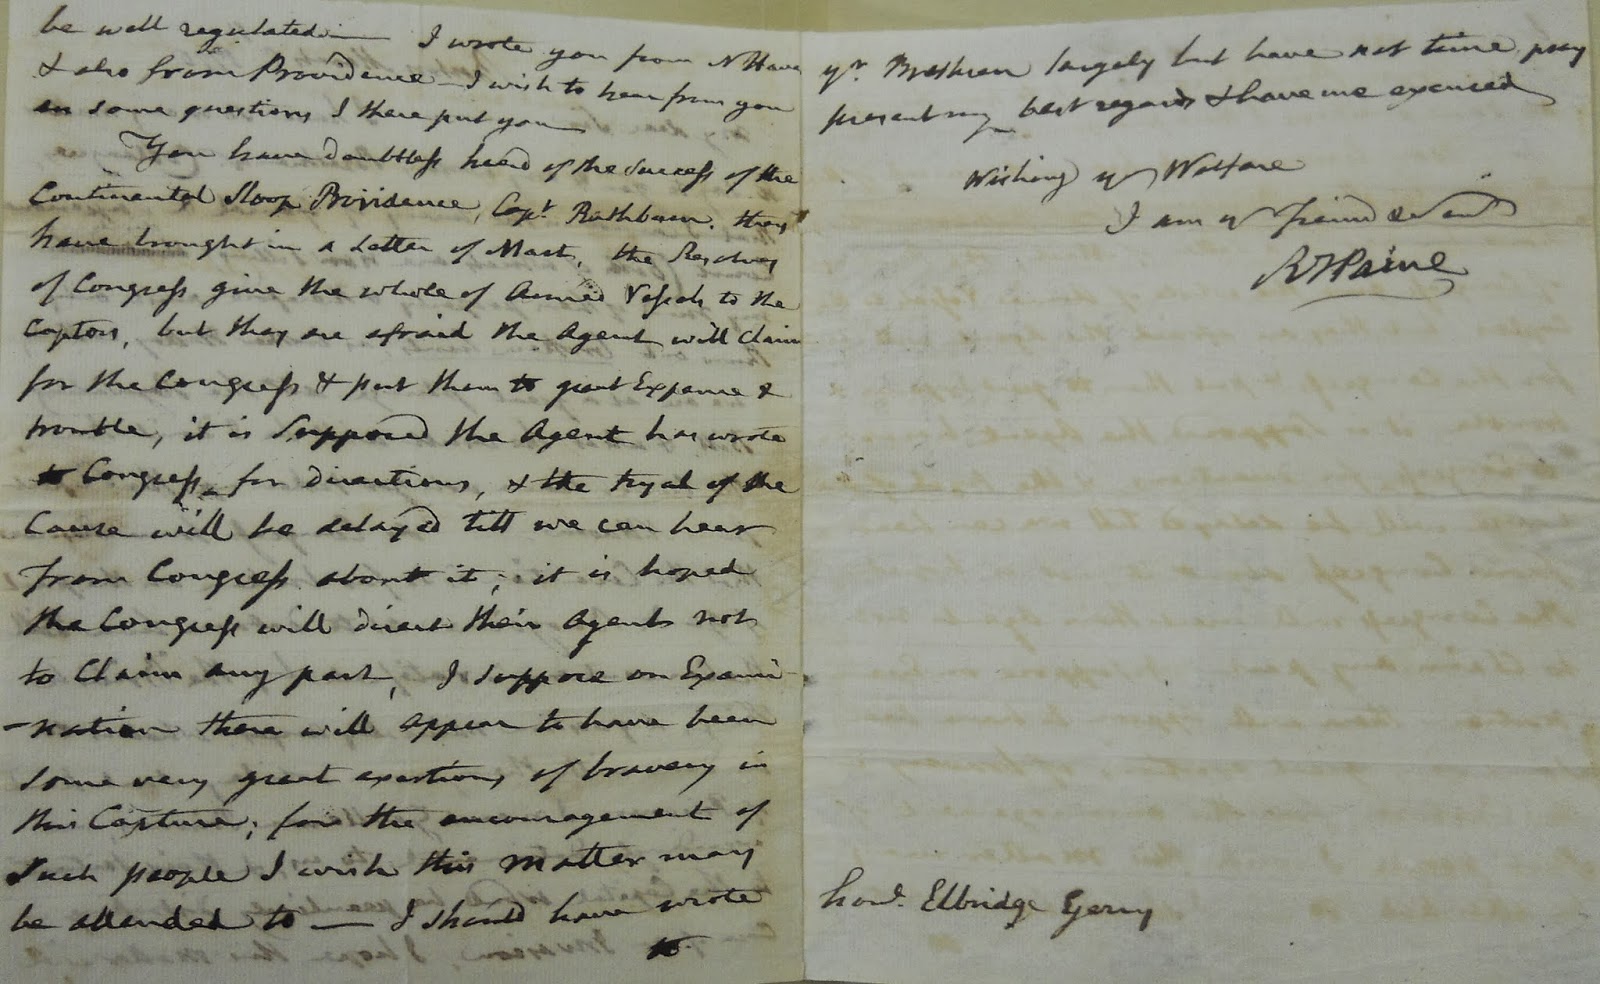 be well regulated — I wrote you from N Haven
& also from Providence — I wish to hear from you
on some questions I there put you
You have doubtless heard of the Success of the
Continental Sloop Providence, Capt. Rathburn. they
have brought in a Letter of Mart, the Resolves
of Congress give the whole of Armed Vessels to the
Captors, but they are afraid the Agent will Claim
for the Congress & put them to great Expence &
trouble, it is Supposed the Agent has wrote
to Congress for directions, & the tryal of the
Cause will be delayed till we can hear
from Congress about it; it is hoped
the Congress will direct their Agents not
to Claim any part, I suppose on Exami-
-nation there will appear to have been
some very great exertions of bravery in
this Capture; for the encouragement of
Such people I wish this matter may
be attended to — I should have wrote
to
yr. Brethren largely but have not time pray
present my best regards & have me excused
Wishing yr Welfare
I am yr friend & Servt
RTPaine
Honl. Elbridge Gerry